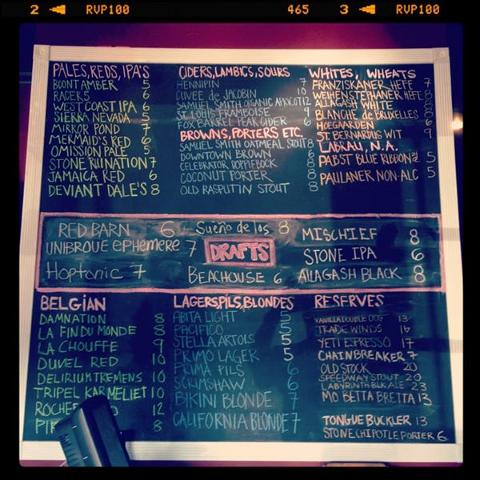 2 RVP100 465 3 RVP100
PALES, REDS, IPA'S
BOONT AMBER 5
RACER 5 6
WEST COAST IPA 6
SIERRA NEVADA 5
MIRROR POND 7
MERMAID'S RED 6
OMISSION PALE 5
STONE RUINATION 7
JAMAICA RED 6
DEVIANT DALE'S 8
CIDERS, LAMBICS, SOURS
HENNIPIN 7
CUVÉE de JACOBIN 10
SAMUEL SMITH ORGANIC 12
ST. LOUIS FRAMBOISE 9
FOX BARREL PEAR CIDER 6
BROWNS, PORTERS ETC.
SAMUEL SMITH OATMEAL STOUT 8
DOWNTOWN BROWN 6
CELEBRATOR DOPPLEBOCK 8
COCONUT PORTER
OLD RASPUTIN STOUT 8
WHITES, WHEATS
FRANZISKANER HEFE 7
WEIHENSTEPHANER HEFE 8
ALLAGASH WHITE 8
BLANCHE de BRUXELLES 8
HOEGARDEN
ST. BERNARDUS WIT 9
N.A.
PABST BLUE RIBBON 5
PAULANER NON-ALC 5
RED BARN 6
UNIBROUE EPHEMERE 7
Hoptonic 7
Sueño de los 8
DRAFTS
BEACHOUSE 6
MISCHIEF 8
STONE IPA 6
ALLAGASH BLACK 8
BELGIAN
DAMNATION 8
LA FIN DU MONDE 8
LA CHOUFFE 9
DUVEL RED 10
DELIRIUM TREMENS 10
TRIPEL KARMELIET 10
ROCHEF 12
8
LAGERS, PILS, BLONDES
ABITA LIGHT 5
PACIFICO 5
STELLA ARTOIS 5
PRIMO LAGER 5
PRIMA PILS 6
SCRIMSHAW 6
BIKINI BLONDE 7
CALIFORNIA BLONDE 7
RESERVES
VANILLA DOUBLE DOG 13
TRADE WINDS 16
YETI ESPRESSO 17
CHAINBREAKER 7
OLD STOCK 20
SPEEDWAY STOUT 20
LABYRINTH BLK ALE 23
MO BETTA BRETTA 13
TONGUE BUCKLER 13
STONE CHIPOTLE PORTER 6